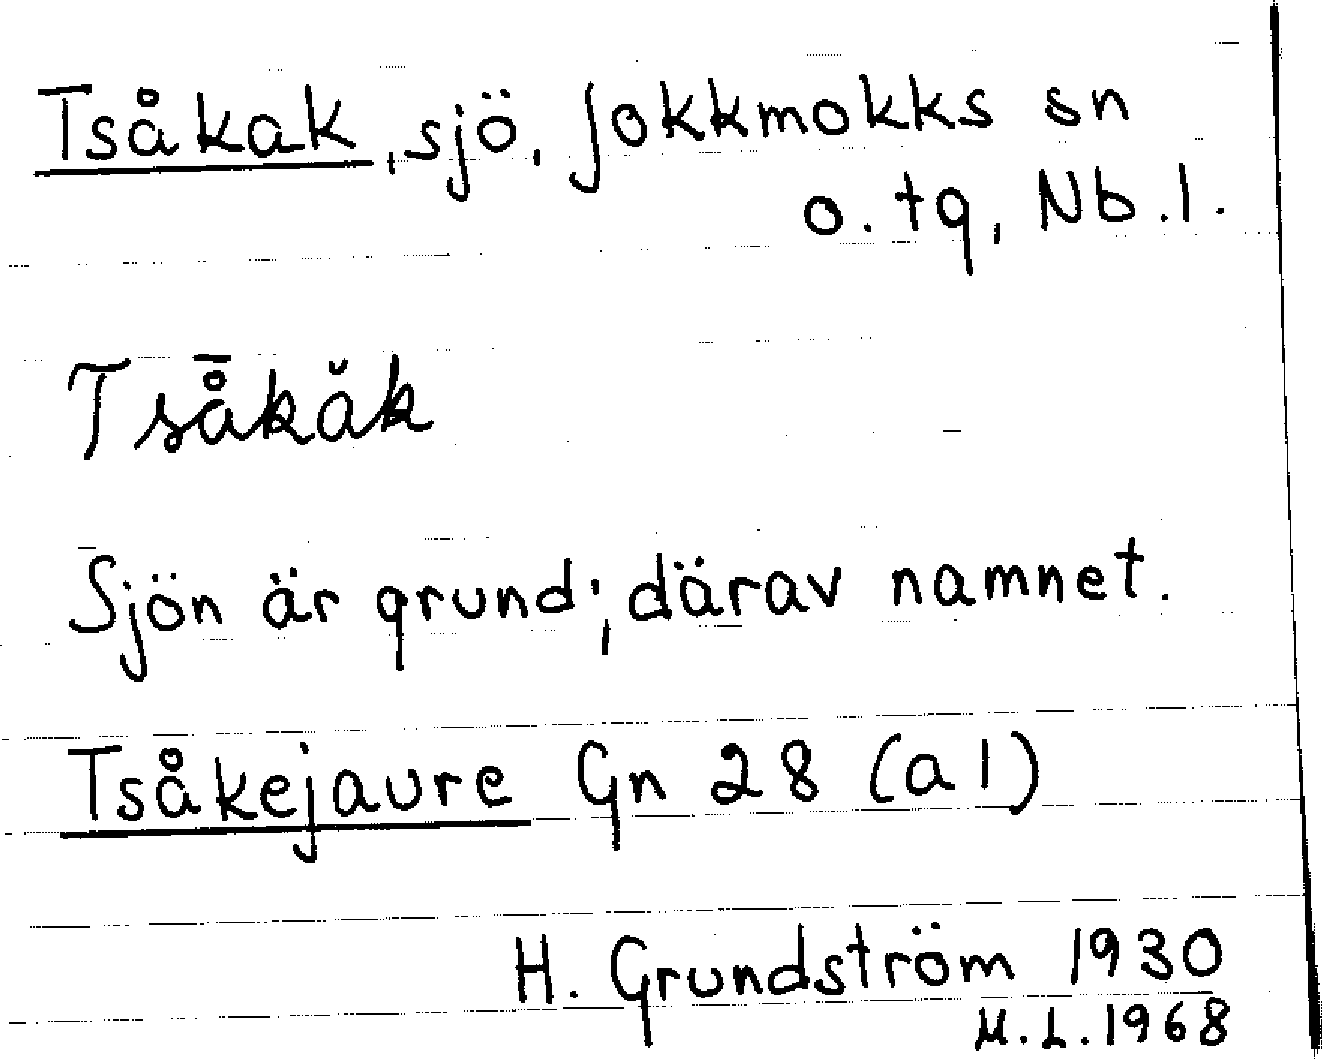 Tsåkak, sjö, Jokkmokks sn
o. tg, Nb.l.
Tså̄kăk
Sjön är grund; därav namnet.
Tsåkejaure Gn 28 (a1)
H. Grundström 1930
M.L.1968